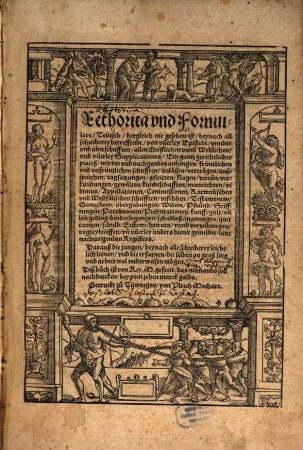 Rethorica
Rethorica vnd Formu
lare/Teütsch/dergleich nie gesehen ist/beynach all
schreyberey betreffende/von vilerley Episteln/vnder
vnd überschrifften/allen Geistlichen vnnd Weltlichen/
vnd vilerley Supplicationes/Ein gantz gerichtlicher
proceß/mit vor vnd nachgenden anhengen/früntlichen
vnd vnfrüntlichen schrifften/anlässen/verträgen/auß
sprüchen/tagsatzungen/geleitten/klagen/vrteln/ver
kündungen/gewälten/kundtschafften/manrechten/
Commissionen/
vnd Weltlichen schrifften/vrfehden/Testamenten/
Gemechten/übergebungen/Widem/Pfründ/Stiff-
tungen/Patrimonien/Presentationen/keüff/gült/ver
leihung/hinderlegungen/schadloß/nammungen/quit
tantzen/schuld/Lehen/heirats/vnd verzeihungen/
vogtreybrieffen/vñ vilerley anders hierin gemeldet laut
nachvolgenden Registers.
Darauß die jungen/beynach alle schreiberey liche-
lich lernen/vnd die erfarnen/die selben on groß sorg
vnd arbeit wol vnderweisen mögen.
Diß bůch ist von Rey. M. gefreit/das niemands soll
nachdrucken/bey peen zehen marck golds.
Getruckt zů Tüwingen/von Vlrich Morhart.